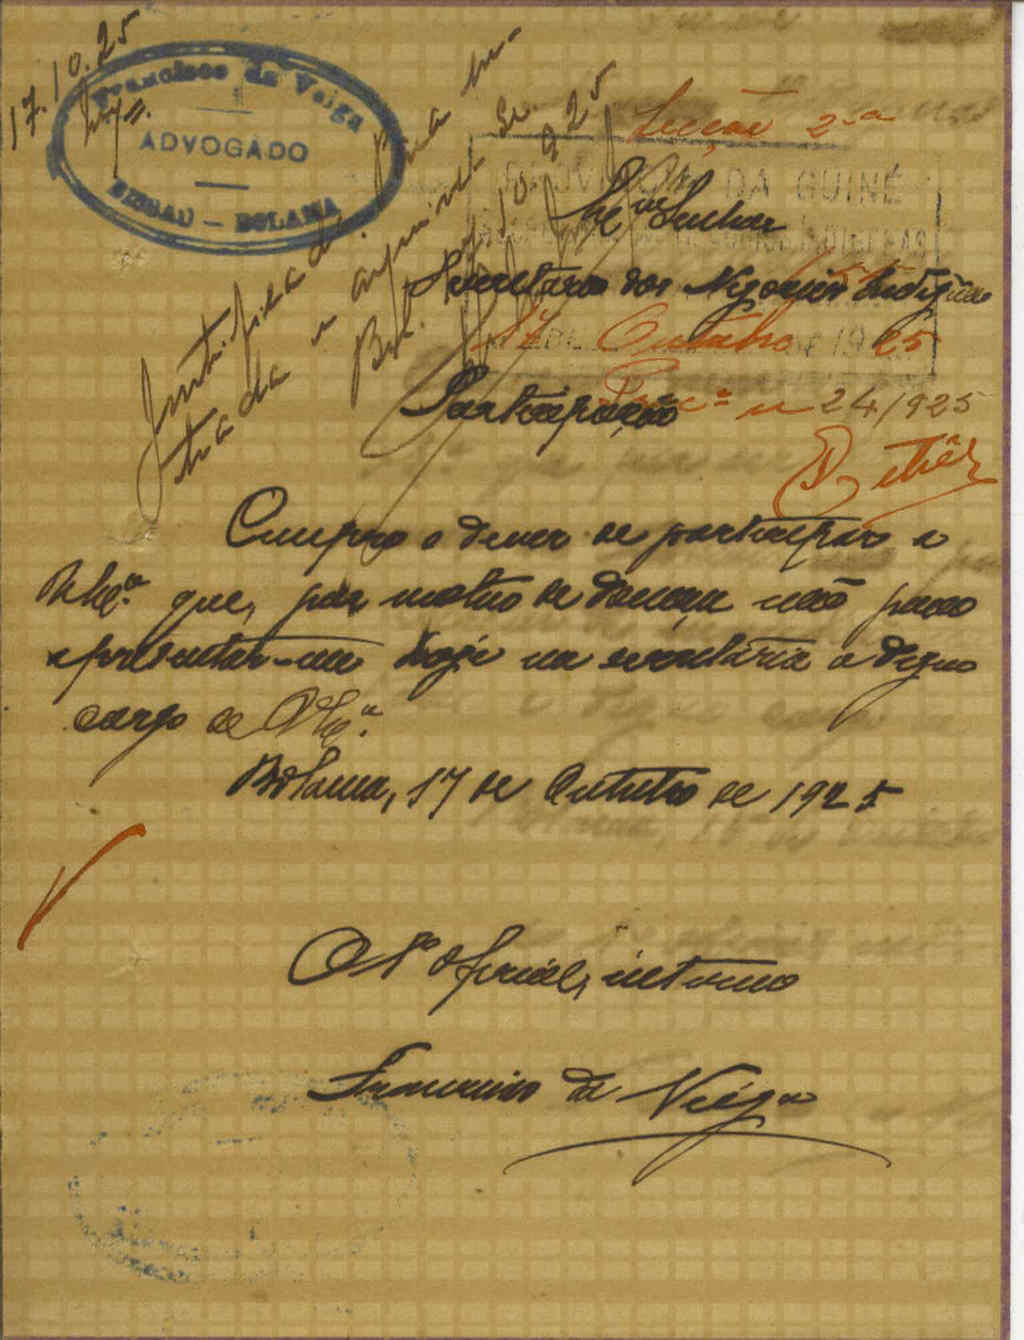 17.10.25
Francisco da Veiga
ADVOGADO
BISSAU — BOLAMA
Justificada. Dê
trada e arquive-se.
Bol. 17.10.925
Secção 2.ª
PROVINCIA DA GUINÉ
Ex.mo Senhor
Secretario dos Negocios Indigenas
17 Outubro 1925
Participação
Proc.º n 24/925
Cumpro o dever de participar a
V. Ex.ª que, por motivo de doença não posso
apresentar-me hoje na secretária a digno
cargo de V. Ex.ª
Bolama, 17 de Outubro de 1925
O 1º oficial, interino
Francisco da Veiga